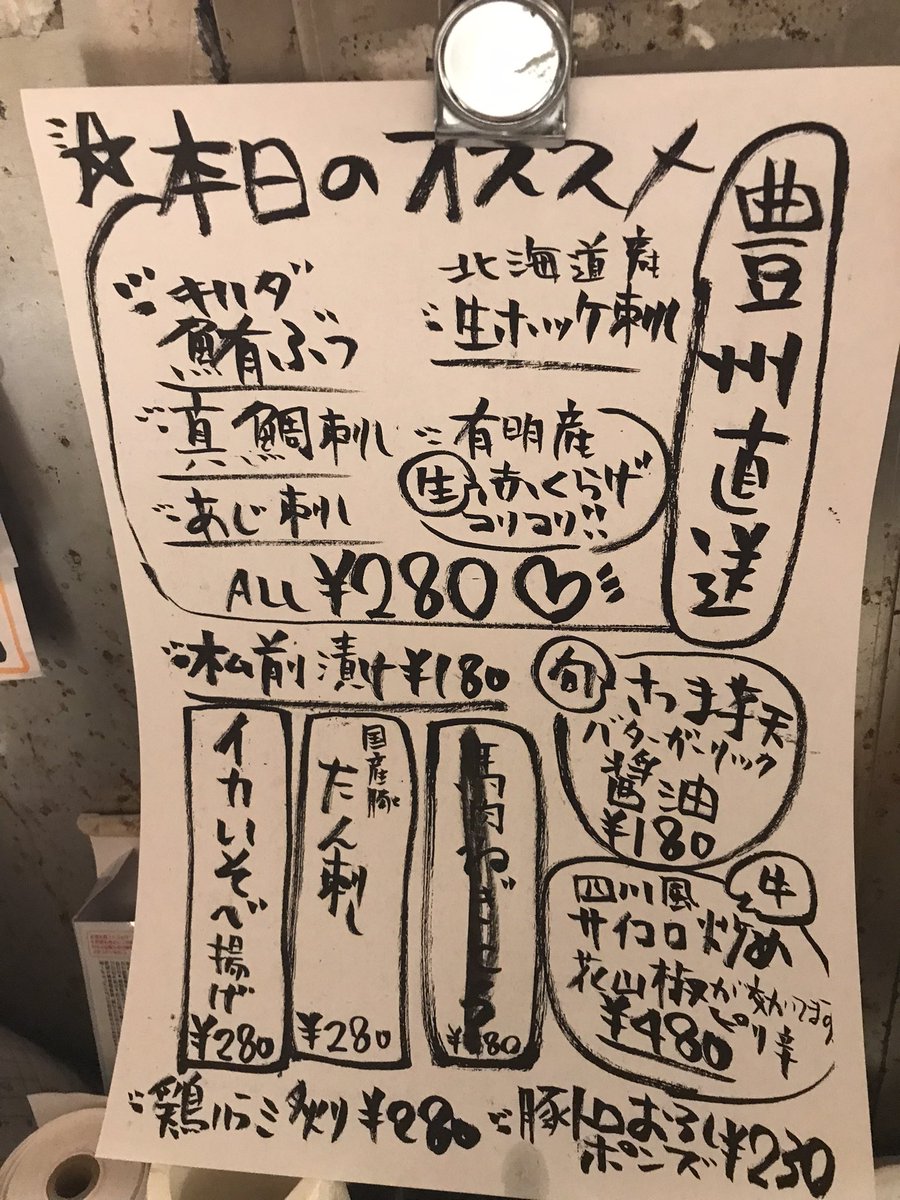 ☆本日のオススメ
豊州直送
キハダ
鮪ぶつ
真鯛刺し
あじ刺し
北海道産
生ホッケ刺し
有明産
生 赤くらげ
コリコリ!!
ALL ¥280♡
松前漬け ¥180
旬 さつま芋天
バターガーリック
醤油
¥180
イカいそべ揚げ
¥280
国産豚
たん刺し
¥280
馬肉ねぎ
牛
四川風
サイコロ炒め
花山椒が効いてます。
ピリ辛
¥480
鶏ハラミ炙り ¥280
豚トロおろし
ポンズ ¥230